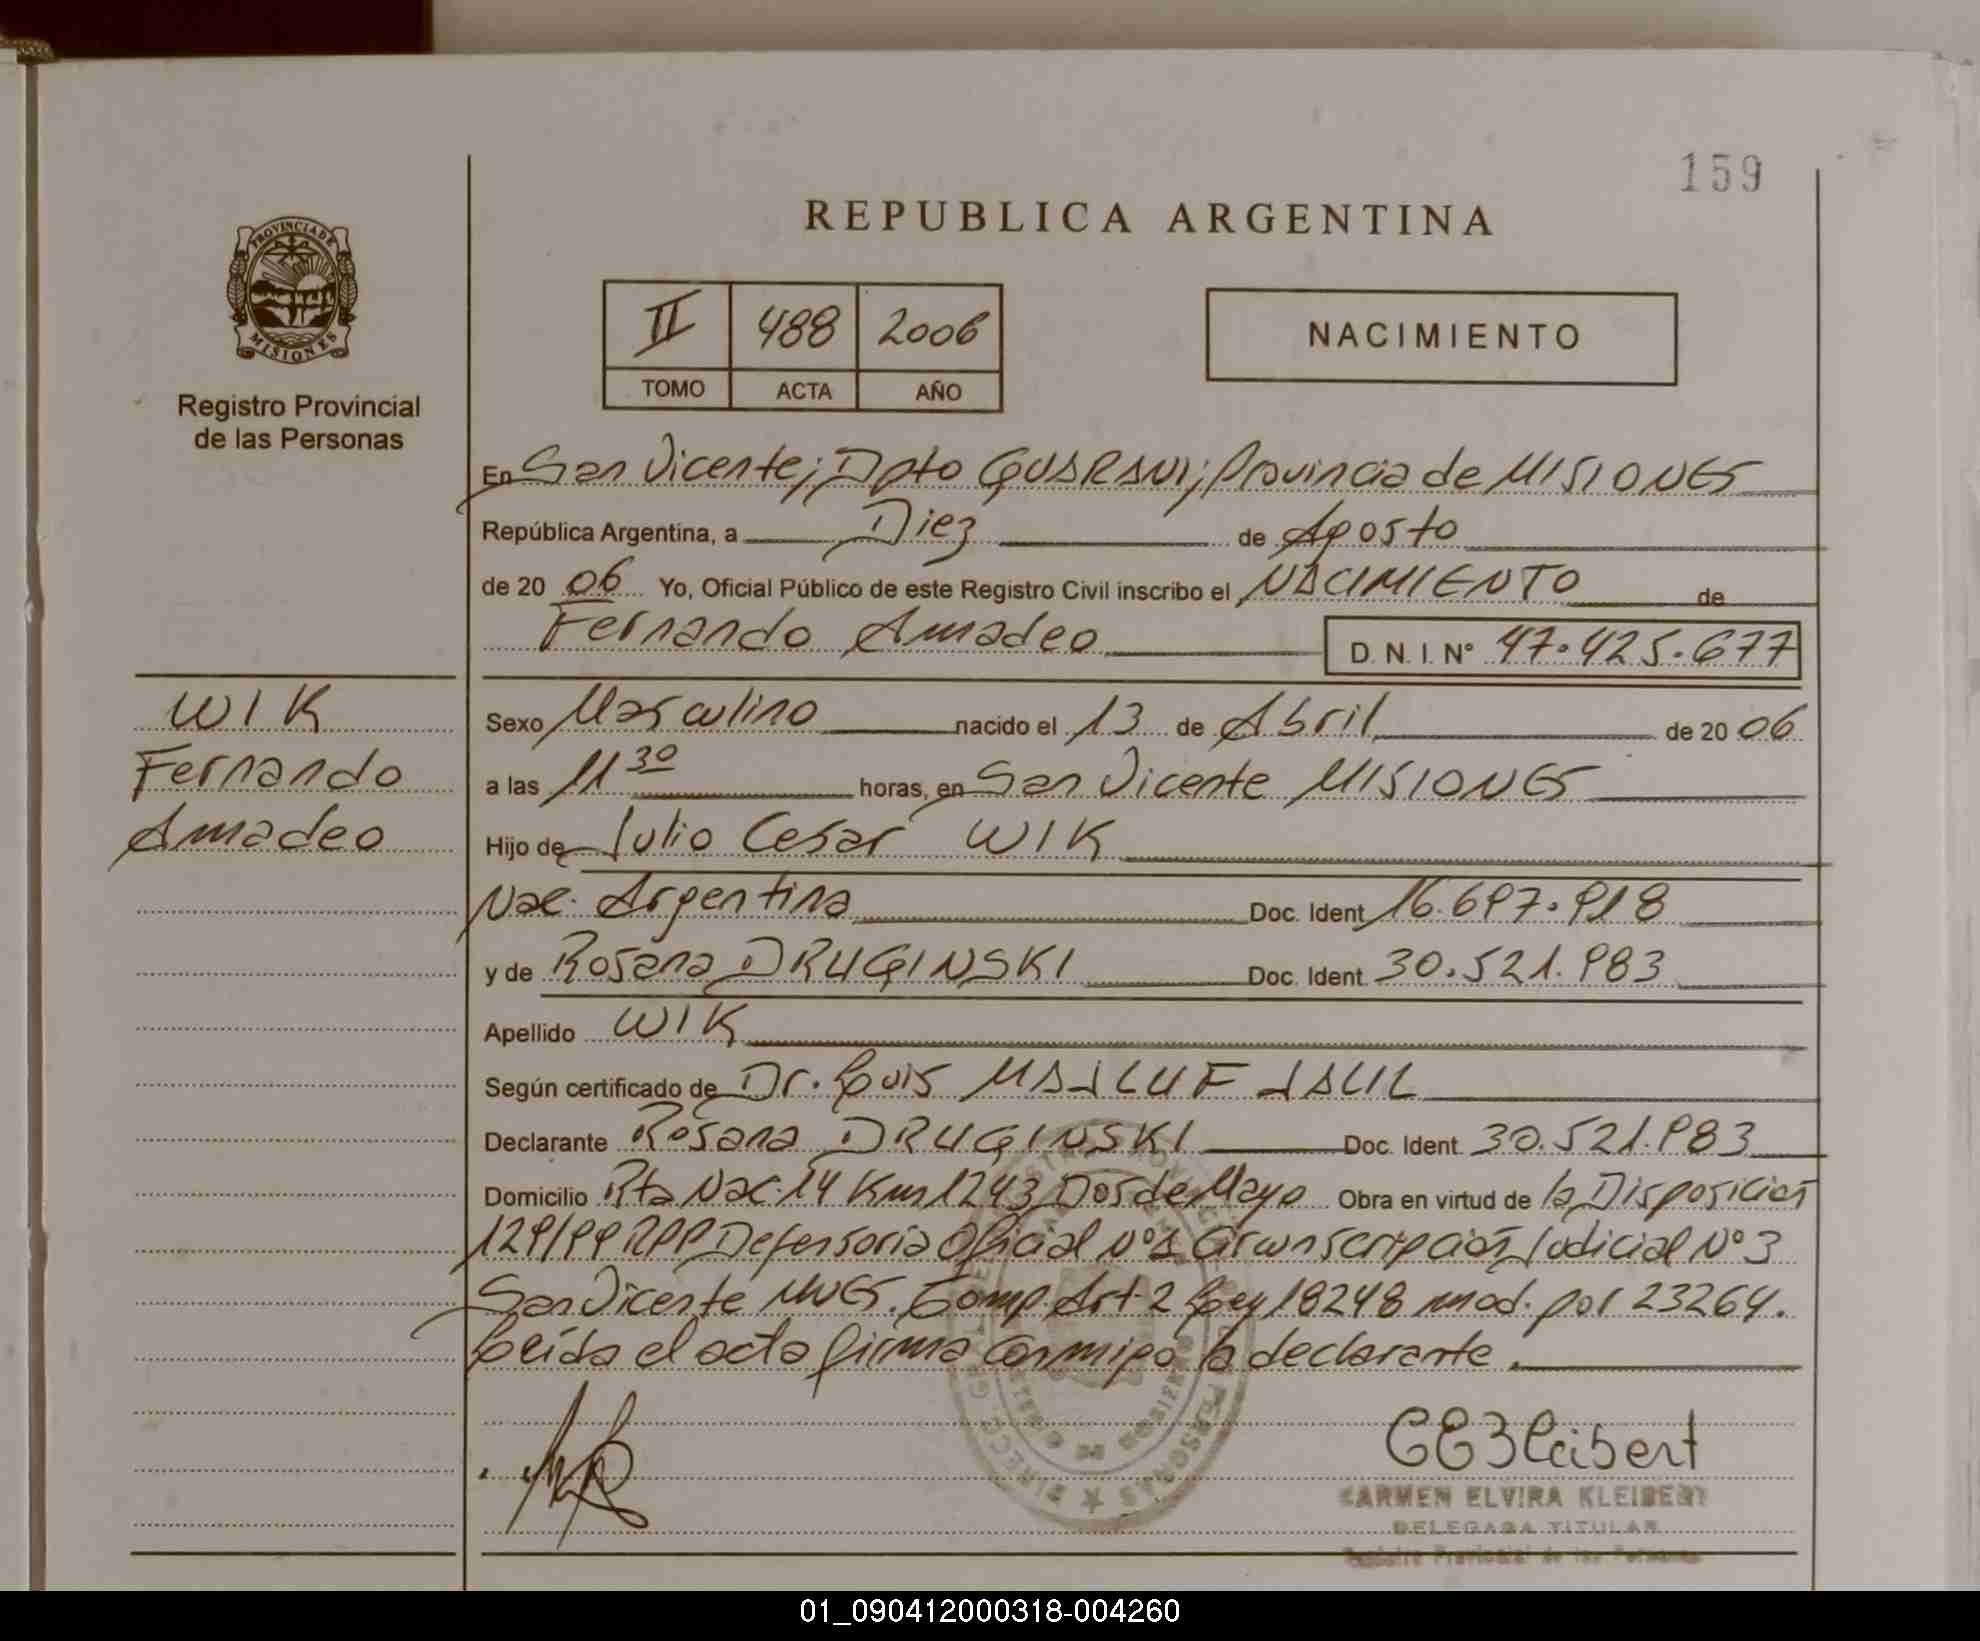 159
REPUBLICA ARGENTINA
PROVINCIA DE
MISIONES
Registro Provincial
de las Personas
II 488 2006
TOMO ACTA AÑO
NACIMIENTO
En San Vicente; Dpto GUARANI; Provincia de MISIONES
República Argentina, a Diez de Agosto
de 20 06 Yo, Oficial Público de este Registro Civil inscribo el NACIMIENTO de
Fernando Amadeo D. N. I. Nº 47.425.677
WIK
Fernando
Amadeo
Sexo Masculino nacido el 13 de Abril de 20 06
a las 11 30 horas, en San Vicente MISIONES
Hijo de Julio Cesar WIK
Nac. Argentina Doc. Ident. 16.697.918
y de Rosana DRUGINSKI Doc. Ident. 30.521.983
Apellido WIK
Según certificado de Dr. Luis
Declarante Rosana DRUGINSKI Doc. Ident. 30.521.983
Domicilio Rta Nac. 14 Km 1243 Dos de Mayo Obra en virtud de la Disposición
129/99 RPP Defensoria Oficial Nº 1 Circunscripción Judicial Nº 3
San Vicente MNES. Comp. Art. 2 Ley 18248 mod. por 23264.
Leída el acta firma conmigo la declarante.
CEKleibert
CARMEN ELVIRA KLEIBERT
DELEGADA TITULAR
Registro Provincial de las Personas
01_090412000318-004260